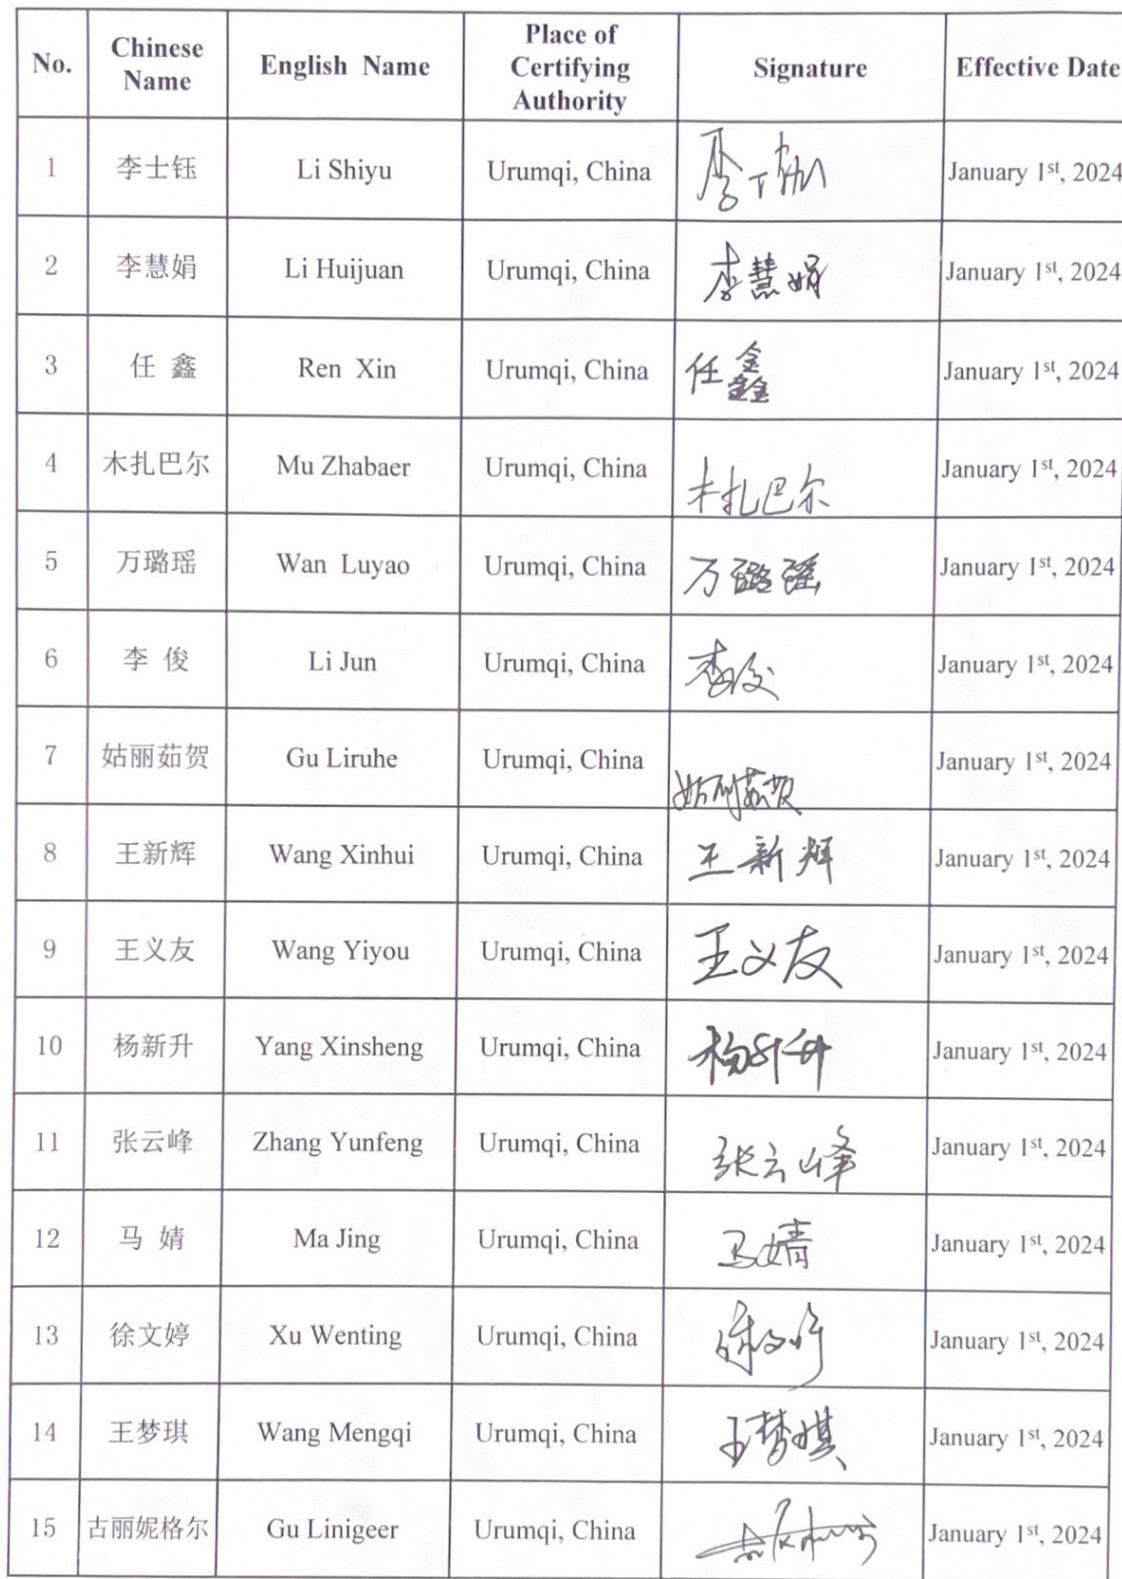 No. Chinese Name English Name Place of Certifying Authority Signature Effective Date
1 李士钰 Li Shiyu Urumqi, China January 1st, 2024
2 李慧娟 Li Huijuan Urumqi, China 李慧娟 January 1st, 2024
3 任 鑫 Ren Xin Urumqi, China 任鑫 January 1st, 2024
4 木扎巴尔 Mu Zhabaer Urumqi, China 木扎巴尔 January 1st, 2024
5 万璐瑶 Wan Luyao Urumqi, China 万璐瑶 January 1st, 2024
6 李 俊 Li Jun Urumqi, China 李俊 January 1st, 2024
7 姑丽茹贺 Gu Liruhe Urumqi, China 姑丽茹贺 January 1st, 2024
8 王新辉 Wang Xinhui Urumqi, China 王新辉 January 1st, 2024
9 王义友 Wang Yiyou Urumqi, China 王义友 January 1st, 2024
10 杨新升 Yang Xinsheng Urumqi, China 杨新升 January 1st, 2024
11 张云峰 Zhang Yunfeng Urumqi, China 张云峰 January 1st, 2024
12 马 婧 Ma Jing Urumqi, China 马婧 January 1st, 2024
13 徐文婷 Xu Wenting Urumqi, China 徐文婷 January 1st, 2024
14 王梦琪 Wang Mengqi Urumqi, China 王梦琪 January 1st, 2024
15 古丽妮格尔 Gu Linigeer Urumqi, China January 1st, 2024